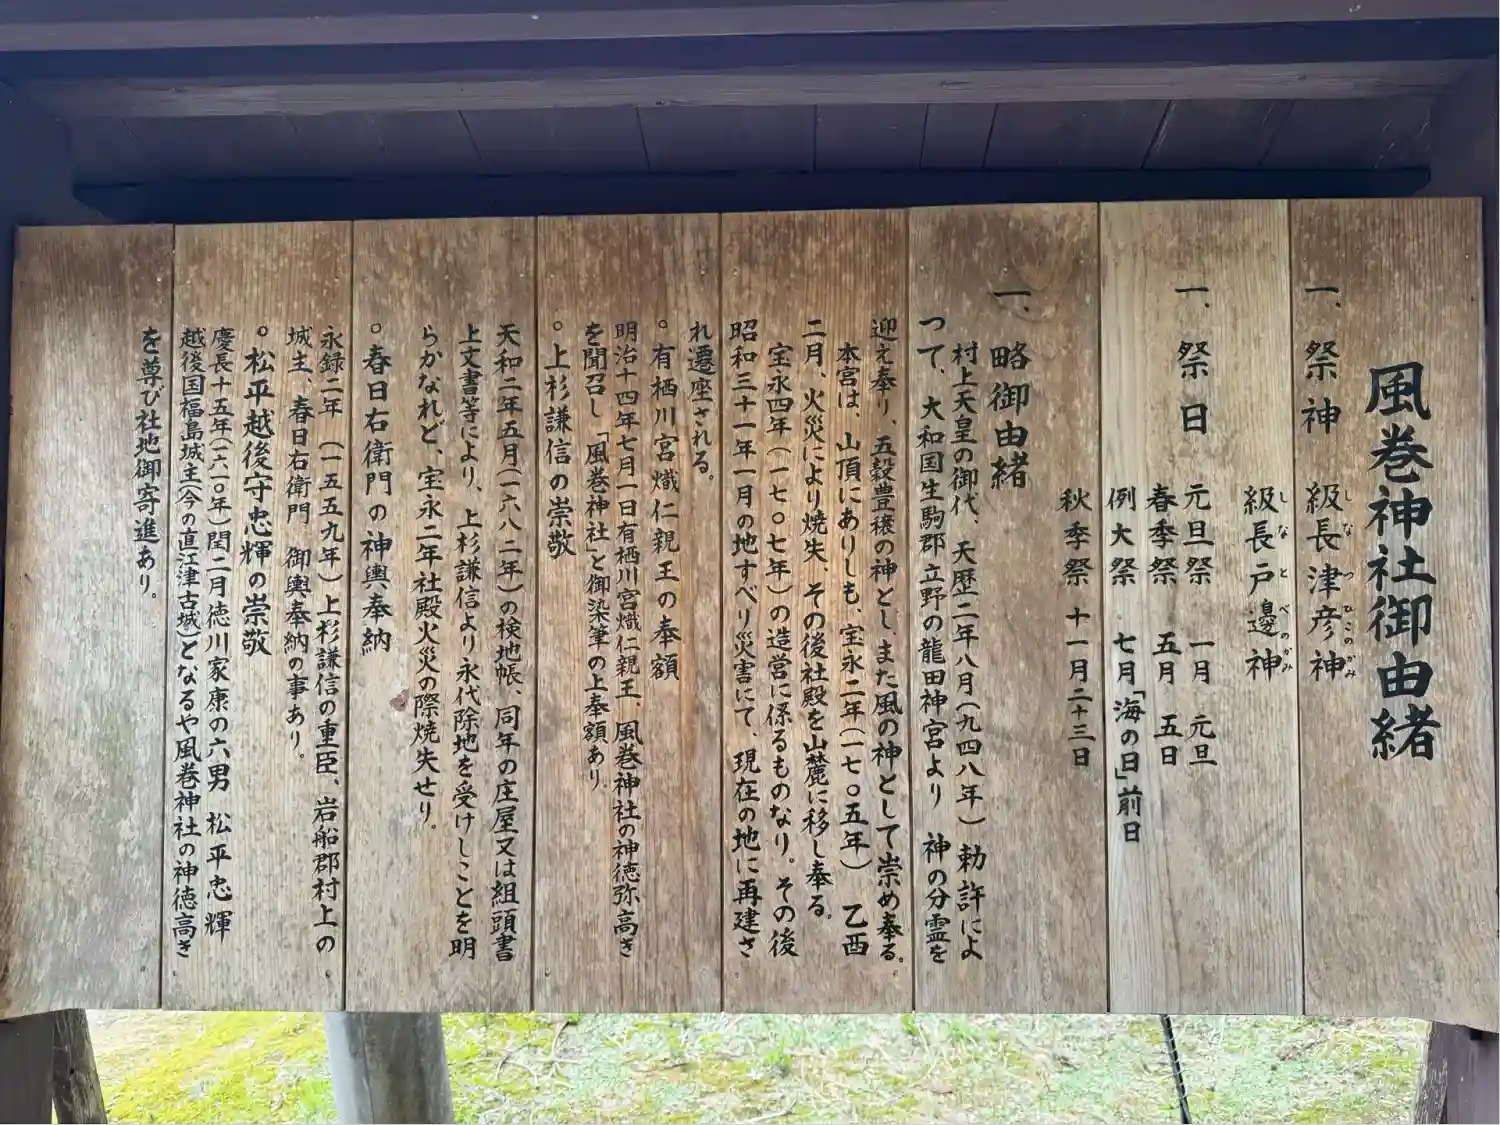 風巻神社御由緒
一、祭神 級長津彦神
しなつひこのかみ
級長戸邊神
しなとべのかみ
一、祭日 元旦祭 一月 元旦
春季祭 五月 五日
例大祭 七月「海の日」前日
秋季祭 十一月二十三日
一、略御由緒
村上天皇の御代、天歴二年八月(九四八年)勅許によ
つて、大和国生駒郡立野の龍田神宮より 神の分霊を
迎え奉り、五穀豊穣の神とし、また風の神として崇め奉る。
本宮は、山頂にありしも、宝永二年(一七〇五年) 乙酉
二月、火災により焼失、その後社殿を山麓に移し奉る。
宝永四年(一七〇七年)の造営に係るものなり。その後
昭和三十一年一月の地すべり災害にて、現在の地に再建さ
れ遷座される。
○有栖川宮熾仁親王の奉額
明治十四年七月一日有栖川宮熾仁親王、風巻神社の神徳弥高き
を聞召し「風巻神社」と御染筆の上奉額あり。
○上杉謙信の崇敬
天和二年五月(一六八二年)の検地帳、同年の庄屋又は組頭書
上文書等により、上杉謙信より永代除地を受けしことを明
らかなれど、宝永二年社殿火災の際焼失せり。
○春日右衛門の神輿奉納
永録二年 (一五五九年)上杉謙信の重臣、岩船郡村上の
城主、春日右衛門 御輿奉納の事あり。
○松平越後守忠輝の崇敬
慶長十五年(一六一〇年)閏二月徳川家康の六男 松平忠輝
越後国福島城主(今の直江津古城)となるや風巻神社の神徳高き
を尊び社地御寄進あり。